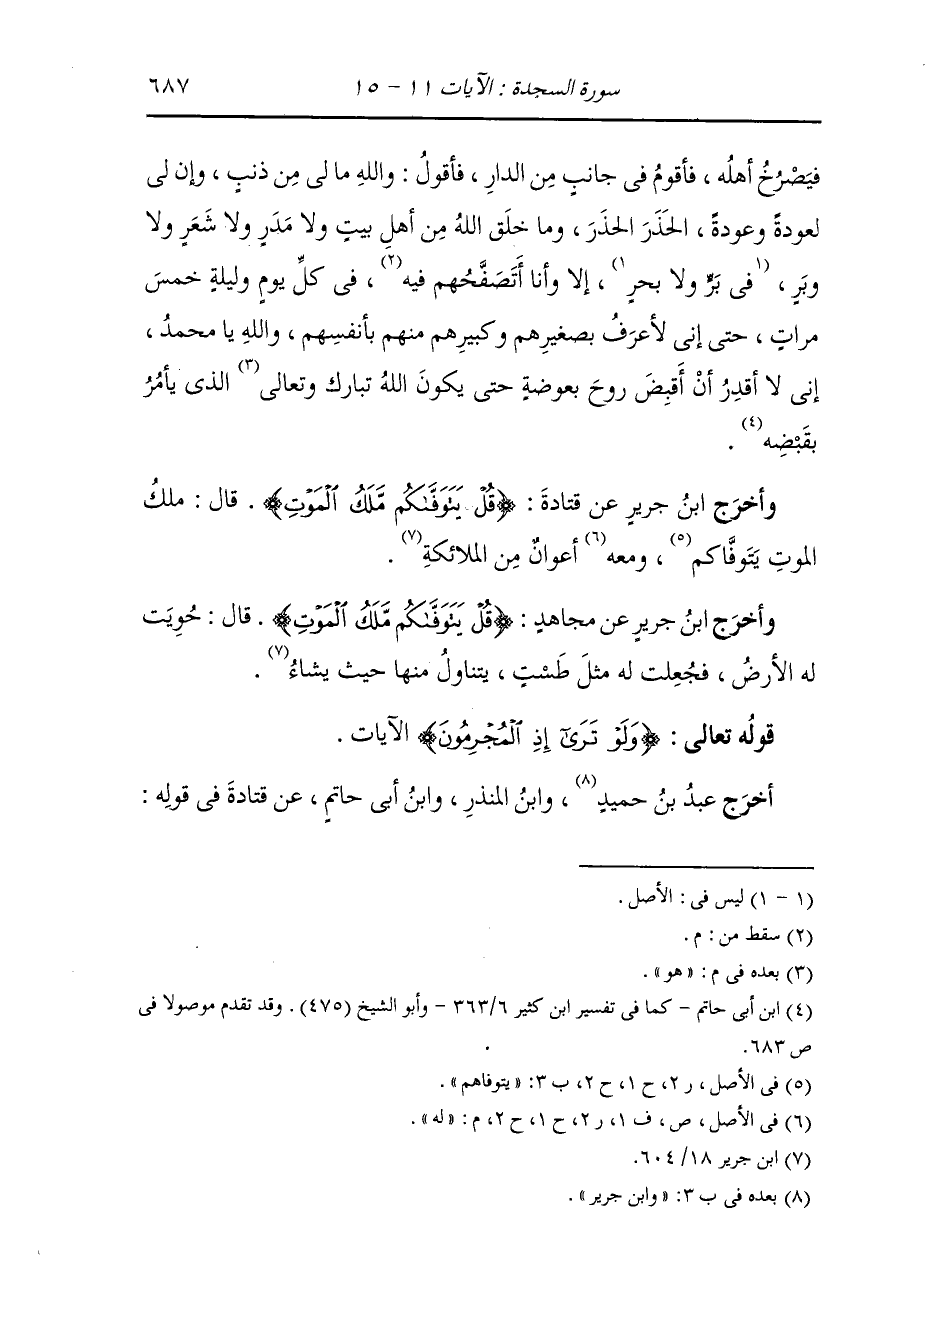 سورة السجدة : الآيات ١١ - ١٥ ٦٨٧
فيَصْرُخُ أهلُه ، فأقومُ فى جانبٍ مِن الدارِ ، فأقولُ : واللهِ ما لى مِن ذنبٍ ، وإن لى
لعودةً وعودةً ، الحَذَرَ الحذَرَ ، وما خلَق اللهُ مِن أهلِ بيتٍ ولا مَدَرٍ ولا شَعَرٍ ولا
وبَرٍ ، (١فى بَرٍّ ولا بحرٍ١) ، إلا وأنا أَتَصَفَّحُهم فيه(٢) ، فى كلِّ يومٍ وليلةٍ خمسَ
مراتٍ ، حتى إنى لأعرَفُ بصغيرِهم وكبيرِهم منهم بأنفسِهم ، واللهِ يا محمدُ ،
إنى لا أقدِرُ أنْ أَقبِضَ روحَ بعوضةٍ حتى يكونَ اللهُ تبارك وتعالى(٣) الذى يأمُرُ
بقَبْضِه(٤) .
وأخرَج ابنُ جريرٍ عن قتادةَ : ﴿قُلْ يَتَوَفَّىٰكُم مَّلَكُ ٱلْمَوْتِ﴾ . قال : ملكُ
الموتِ يَتَوفَّاكم(٥) ، ومعه(٦) أعوانٌ مِن الملائكةِ(٧) .
وأخرَج ابنُ جريرٍ عن مجاهدٍ : ﴿قُلْ يَتَوَفَّىٰكُم مَّلَكُ ٱلْمَوْتِ﴾ . قال : حُوِيَت
له الأرضُ ، فجُعِلت له مثلَ طَسْتٍ ، يتناولُ منها حيث يشاءُ(٧) .
قولُه تعالى : ﴿وَلَوْ تَرَىٰٓ إِذِ ٱلْمُجْرِمُونَ﴾ الآيات .
أخرَج عبدُ بنُ حميدٍ(٨) ، وابنُ المنذرِ ، وابنُ أبى حاتمٍ ، عن قتادةَ فى قولِه :
(١ - ١) ليس فى : الأصل .
(٢) سقط من : م .
(٣) بعده فى م : «هو» .
(٤) ابن أبى حاتم - كما فى تفسير ابن كثير ٣٦٣/٦ - وأبو الشيخ (٤٧٥) . وقد تقدم موصولا فى
ص ٦٨٣.
(٥) فى الأصل ، ر ٢، ح ١، ح ٢، ب ٣: «يتوفاهم» .
(٦) فى الأصل ، ص ، ف ١، ر ٢، ح ١، ح ٢، م : «له» .
(٧) ابن جرير ١٨/ ٦٠٤.
(٨) بعده فى ب ٣: «وابن جرير» .